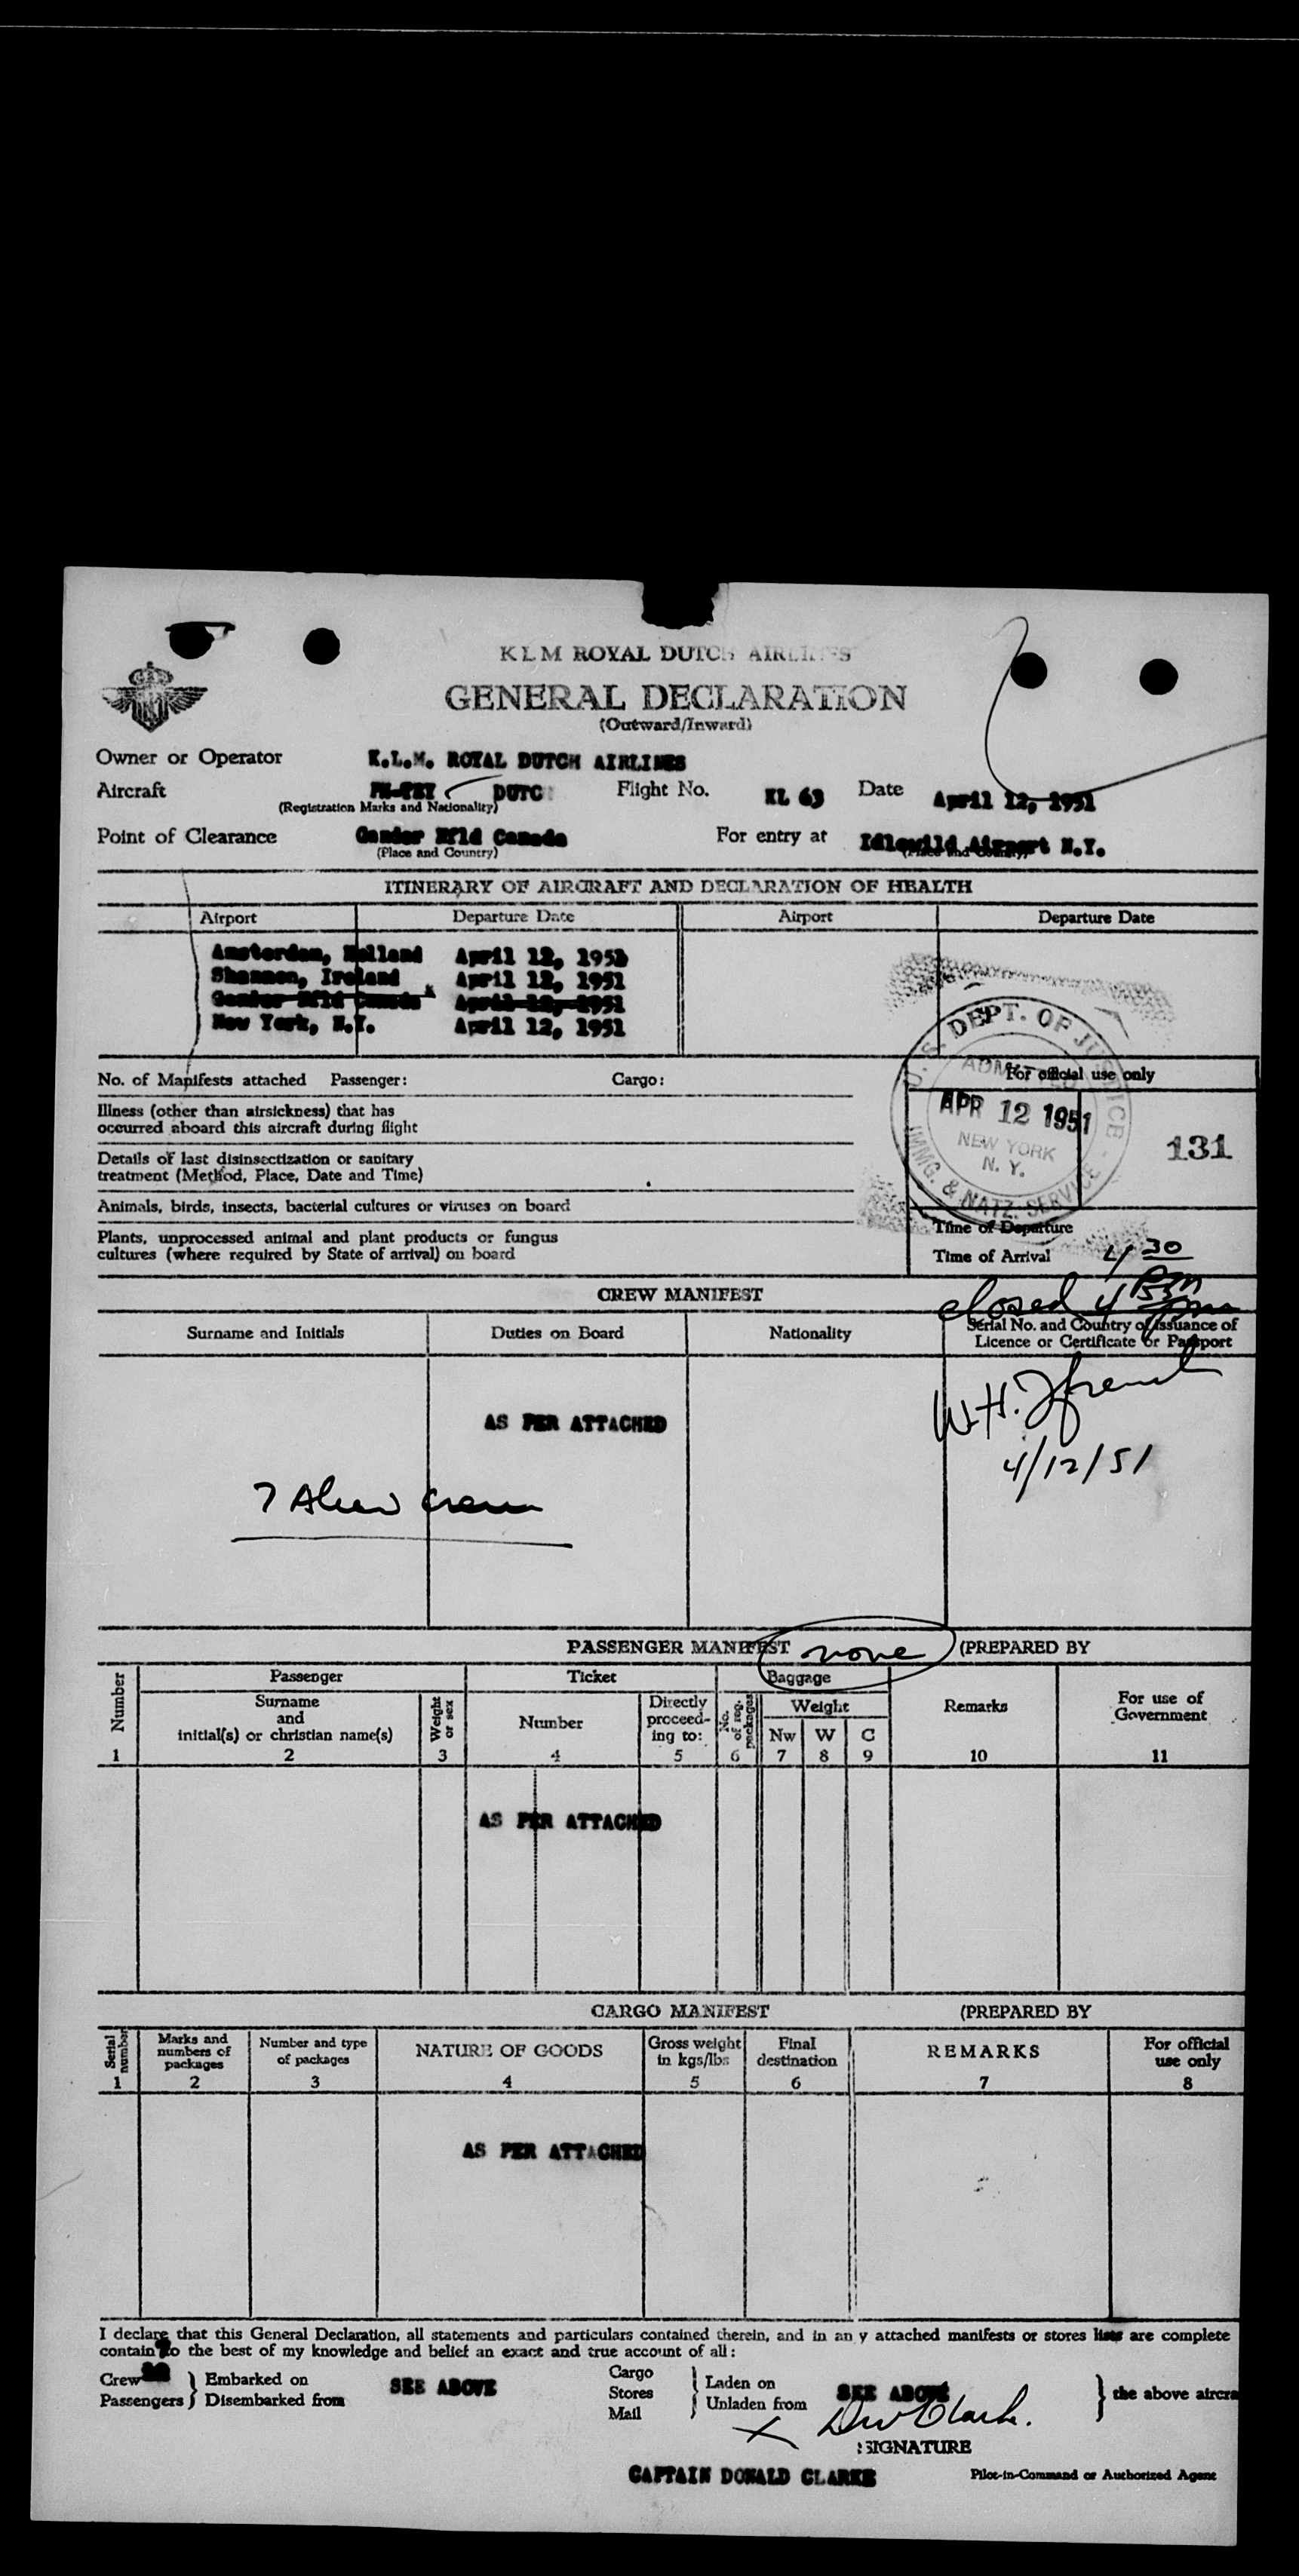 KLM ROYAL DUTCH AIRLINES
GENERAL DECLARATION
(Outward/Inward)
Owner or Operator K.L.M. ROYAL DUTCH AIRLINES
Aircraft DUTC Flight No. KL 63 Date April 12, 1951
(Registration Marks and Nationality)
Point of Clearance Gander Nfld Canada For entry at Idlewild Airport N.Y.
(Place and Country) (Place and Country)
ITINERARY OF AIRCRAFT AND DECLARATION OF HEALTH
Airport Departure Date Airport Departure Date
Amsterdam, Holland April 12, 1951
Shannon, Ireland April 12, 1951
Gander Nfld Canada April 12, 1951
New York, N.Y. April 12, 1951
No. of Manifests attached Passenger: Cargo:
Illness (other than airsickness) that has
occurred aboard this aircraft during flight
Details of last disinsectization or sanitary
treatment (Method, Place, Date and Time)
Animals, birds, insects, bacterial cultures or viruses on board
Plants, unprocessed animal and plant products or fungus
cultures (where required by State of arrival) on board
For official use only
U. S. DEPT. OF JUSTICE - IMMG. & NATZ. SERVICE
ADMITTED
APR 12 1951
NEW YORK
N. Y.
131
Time of Departure
Time of Arrival 4 30 pm
closed 4 55 pm
CREW MANIFEST
Surname and Initials Duties on Board Nationality Serial No. and Country of issuance of
Licence or Certificate or Passport
AS PER ATTACHED
W.H.
4/12/51
7 Alien Crew
PASSENGER MANIFEST none (PREPARED BY
Number Passenger Ticket Baggage Remarks For use of
Government
Surname
and
initial(s) or christian name(s)
Weight
or sex
Number
Directly
proceed-
ing to:
No.
of reg.
packages
Weight
Nw W C
1 2 3 4 5 6 7 8 9 10 11
AS PER ATTACHED
CARGO MANIFEST (PREPARED BY
Serial
number
Marks and
numbers of
packages
Number and type
of packages
NATURE OF GOODS
Gross weight
in kgs/lbs
Final
destination
REMARKS
For official
use only
1 2 3 4 5 6 7 8
AS PER ATTACHED
I declare that this General Declaration, all statements and particulars contained therein, and in any attached manifests or stores lists are complete
contain to the best of my knowledge and belief an exact and true account of all:
Crew } Embarked on SEE ABOVE
Passengers } Disembarked from
Cargo
Stores
Mail
} Laden on
Unladen from
SEE ABOVE } the above aircra
X DW Clarke.
:SIGNATURE
CAPTAIN DONALD CLARKE Pilot-in-Command or Authorized Agent